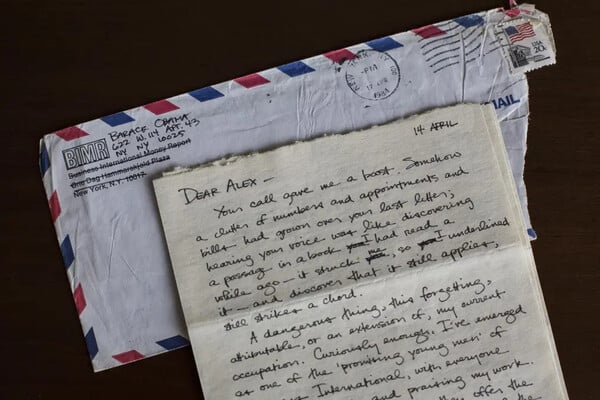 BARACK OBAMA
622 W. 114 APT. 43
NY NY 10025
BIMR
Business International Money Report
One Dag Hammarskjold Plaza
New York, N.Y. 10017
NEW YORK, NY
PM
17 APR
1984
USA
20c
MAIL
14 APRIL
DEAR ALEX —
Your call gave me a boost. Somehow
a clutter of numbers and appointments and
bills had grown over your last letter;
hearing your voice was like discovering
a passage in a book I had read a
while ago — it struck me, so I underlined
it — and discover that it still applies,
still strikes a chord.
A dangerous thing, this forgetting,
attributable, or an extension of, my current
occupation. Curiously enough, I've emerged
as one of the "promising young men" of
International, with everyone
and praising my work.
they offer the
the